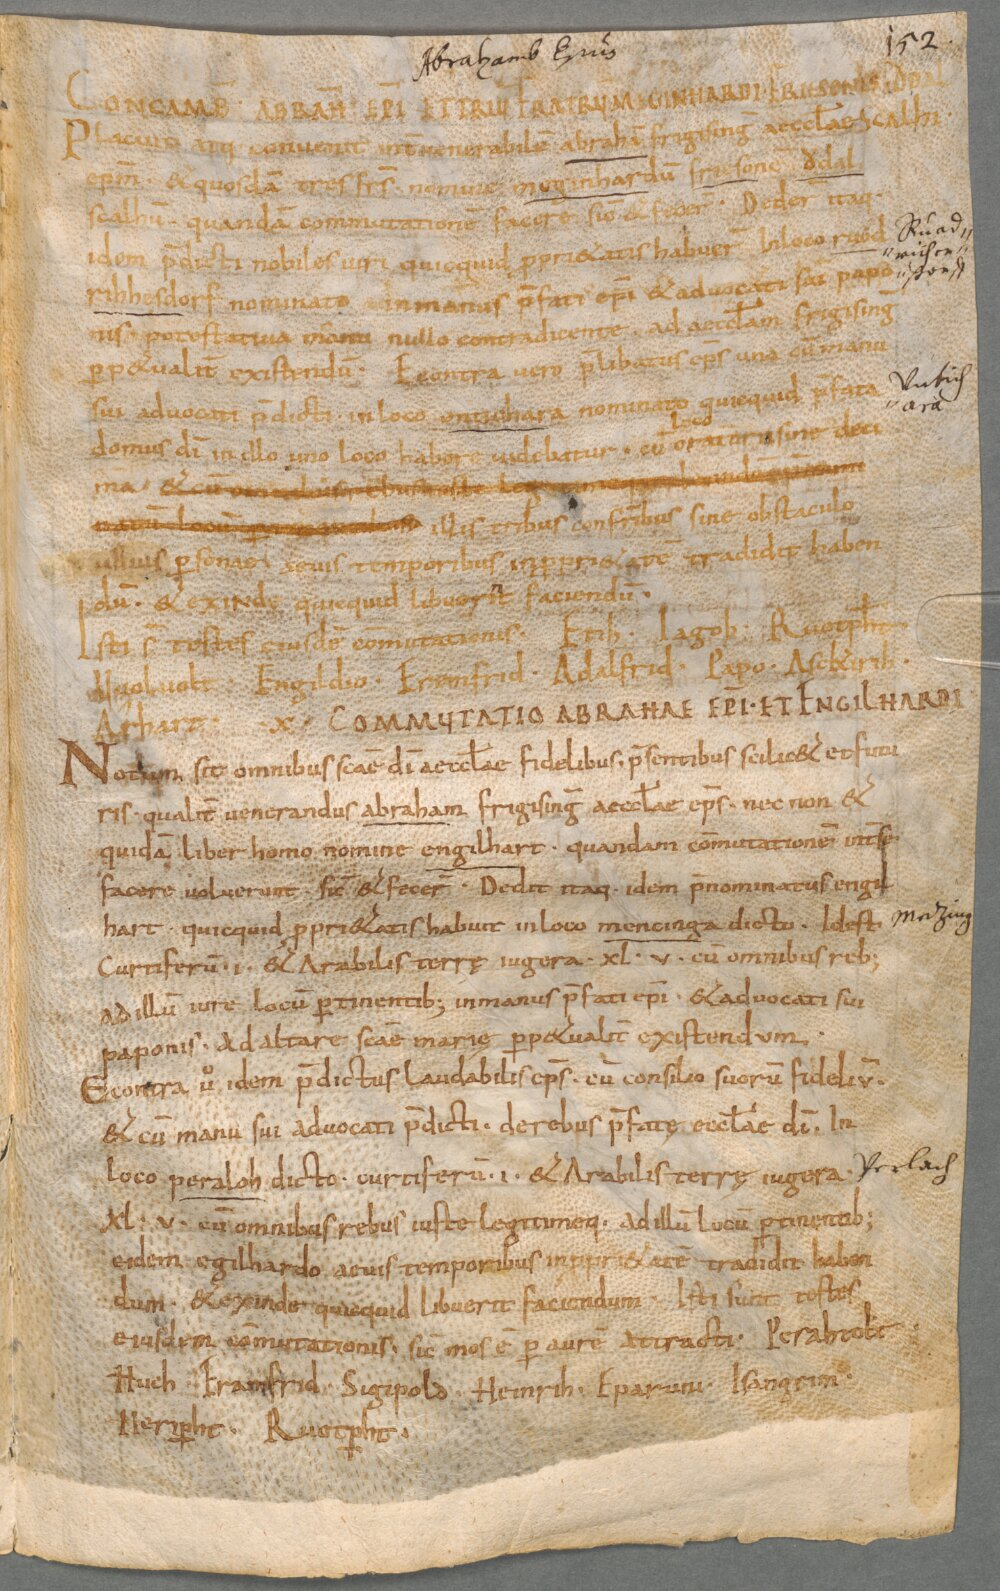 Abrahamb Epūs
152
CONCAMB̄ · ABRAH̄ · EP̄I · ET TRIŪ FRATRVM MEGINHARDI FRIESONIS VDAL
Placuit atq· convenit int̄ venerabilē abrahā frigising̅ aecclae scalhi·
ep̄m · & quosdā tres fr̄s · nomine meginhardū friesonē vdal
scalhū · quandā commutationē facere sic̄ & fecer̄ · Deder̄ itaq·
idem p̄dicti nobiles viri quicquid ppri&atis habuer̄ in loco ruod
Ruod〃
〃riches〃
〃dorf
rihhesdorf nominato in manus p̄fati ep̄i & advocati sui papo
nis potestativa manu nullo contradicente · ad aeccl̄am frigising̅
pp&ualit̄ existendū · Econtra vero p̄libatus ep̄s una cū manu
sui advocati p̄dicti · in loco ontinhara nominato quicquid p̄fata
domus dī in illo uno loco habere videbatur · cū oratorii sine deci
loco
ma ·
illis tribus confrībus sine obstaculo
ullius psonae aevis temporibus in ppri&atē tradidit haben
dū · & exinde quicquid libuerit faciendū ·
Isti s̄ testes eiusdē cōmutationis · Etih · Iagob · Ruotpht
Uuoluolt · Engildio · Eramfrid · Adalfrid · Papo · Asckirih ·
Athart · X · COMMVTATIO ABRAHAE EP̄I · ET ENGILHARDI
Notum sit omnibus scāe dī aeccl̄ae fidelibus · p̄sentibus scilic& et futu
ris · qualit̄ venerandus abraham frigising̅ aeccl̄ae ep̄s · nec non &
quidā liber homo nomine engilhart · quandam cōmutationē int̄ se
facere voluerunt sic̄ & fecer̄ · Dedit itaq· idem p̄nominatus engil
hart · quicquid ppri&atis habuit in loco mencinga dicto · Id est
Menzing
Curtiferū · I · & Arabilis terrę iugera · XL · V · cū omnibus reb;
ad illū iure locū ptinentib; in manus p̄fati ep̄i · & advocati sui
paponis · Ad altare scāe marię pp&ualit̄ existendvm ·
Econtra v̊ idem p̄dictus laudabilis ep̄s · cū consilio suorū fideliv̄ ·
& cū manu sui advocati p̄dicti · de rebus p̄fatę eccl̄ae dī · In
loco peraloh dicto · curtiferū · I · & Arabilis terrę iugera ·
Perlach
XL · V · cū omnibus rebus iuste legitimeq· ad illū locū ptinentib;
eidem egilhardo aevis temporibus in ppri&atē tradidit haben
dum · & exinde quicquid libuerit faciendum · Isti sunt testes
eiusdem cōmutationis · sic̄ mos ē p aurē attracti · Perahtolt ·
Huch · Eramfrid · Sigipold · Heinrih · Eparuuī · Isangrim ·
Heripht · Ruotpht ·